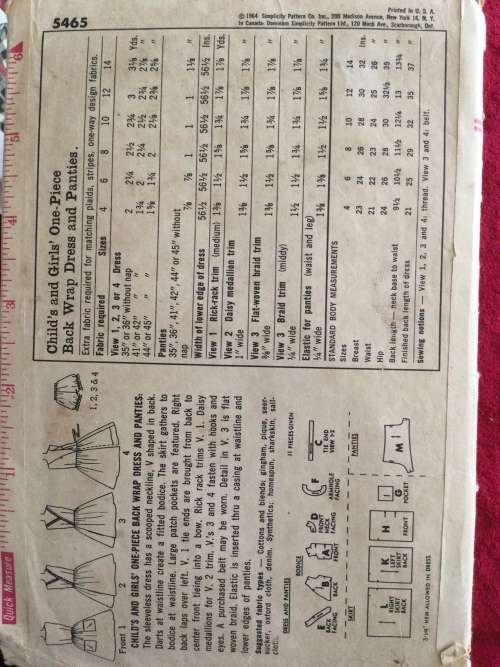 5465
Printed in U. S. A.
© 1964 Simplicity Pattern Co. Inc., 200 Madison Avenue, New York 16, N. Y.
Dominion Simplicity Pattern Ltd., 120 Mack Ave., Scarborough, Ont.
Quick Measure
Child's and Girls' One-Piece
Back Wrap Dress and Panties.
Extra fabric required for matching plaids, stripes, one-way design fabrics.
Fabric required Sizes 4 6 8 10 12 14
View 1, 2, 3 or 4 Dress
35" or 36" without nap 2 2¼ 2½ 2¾ 3 3⅛ Yds.
Panties
35", 36", 41", 42", 44" or 45" without
nap ⅞ ⅞ 1 1 1 1⅛ "
Width of lower edge of dress 56½ 56½ 56½ 56½ 56½ 56½ Ins.
View 1 Rick-rack trim (medium)
View 2 Daisy medallion trim
1" wide
View 3 Flat-woven braid trim
⅜" wide
View 3 Braid trim (middy)
¼" wide
Elastic for panties (waist and leg)
¼" wide
STANDARD BODY MEASUREMENTS
Sizes 4 6 8 10 12 14
Breast 23 24 26 28 30 32 Ins.
Waist 21 22 23 24 25 26 "
Hip 24 26 28 30 32½ 35 "
Back length — neck base to waist 9½ 10½ 11½ 12¼ 13 13¾ "
Finished back length of dress 21 25 29 32 35 37 "
Sewing notions — View 1, 2, 3 and 4: thread. View 3 and 4: belt.
Front 1 2 3 4
1, 2, 3 & 4
CHILD'S AND GIRLS' ONE-PIECE BACK WRAP DRESS AND PANTIES:
The sleeveless dress has a scooped neckline, V shaped in back.
Darts at waistline create a fitted bodice. The skirt gathers to
bodice at waistline. Large patch pockets are featured. Right
back laps over left. V. 1 tie ends are brought from back to
center front tieing into a bow. Rick rack trims V. 1. Daisy
medallions for V. 2 trim. V.'s 3 and 4 fasten with hooks and
eyes. A purchased belt may be worn. Detail in V. 3 is flat
woven braid. Elastic is inserted thru a casing at waistline and
lower edges of panties.
Suggested fabric types — Cottons and blends: gingham, pique, seer-
sucker, oxford cloth, denim. Synthetics: homespun, sharkskin, sail-
cloth.
11 PIECES GIVEN
DRESS AND PANTIES
BODICE
E
BACK
FACING
B
BACK
A
FRONT
D
FRONT
NECK
FACING
F
ARMHOLE
FACING
C
TIE END
VIEW 1-2
SKIRT
PANTIES
L
RIGHT
SKIRT
BACK
K
LEFT
SKIRT
BACK
H
FRONT
G
POCKET
M
HEM ALLOWED IN DRESS